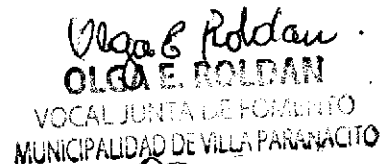 Olga E Roldan.
OLGA E. ROLDAN
VOCAL JUNTA DE FOMENTO
MUNICIPALIDAD DE VILLA PARANACITO